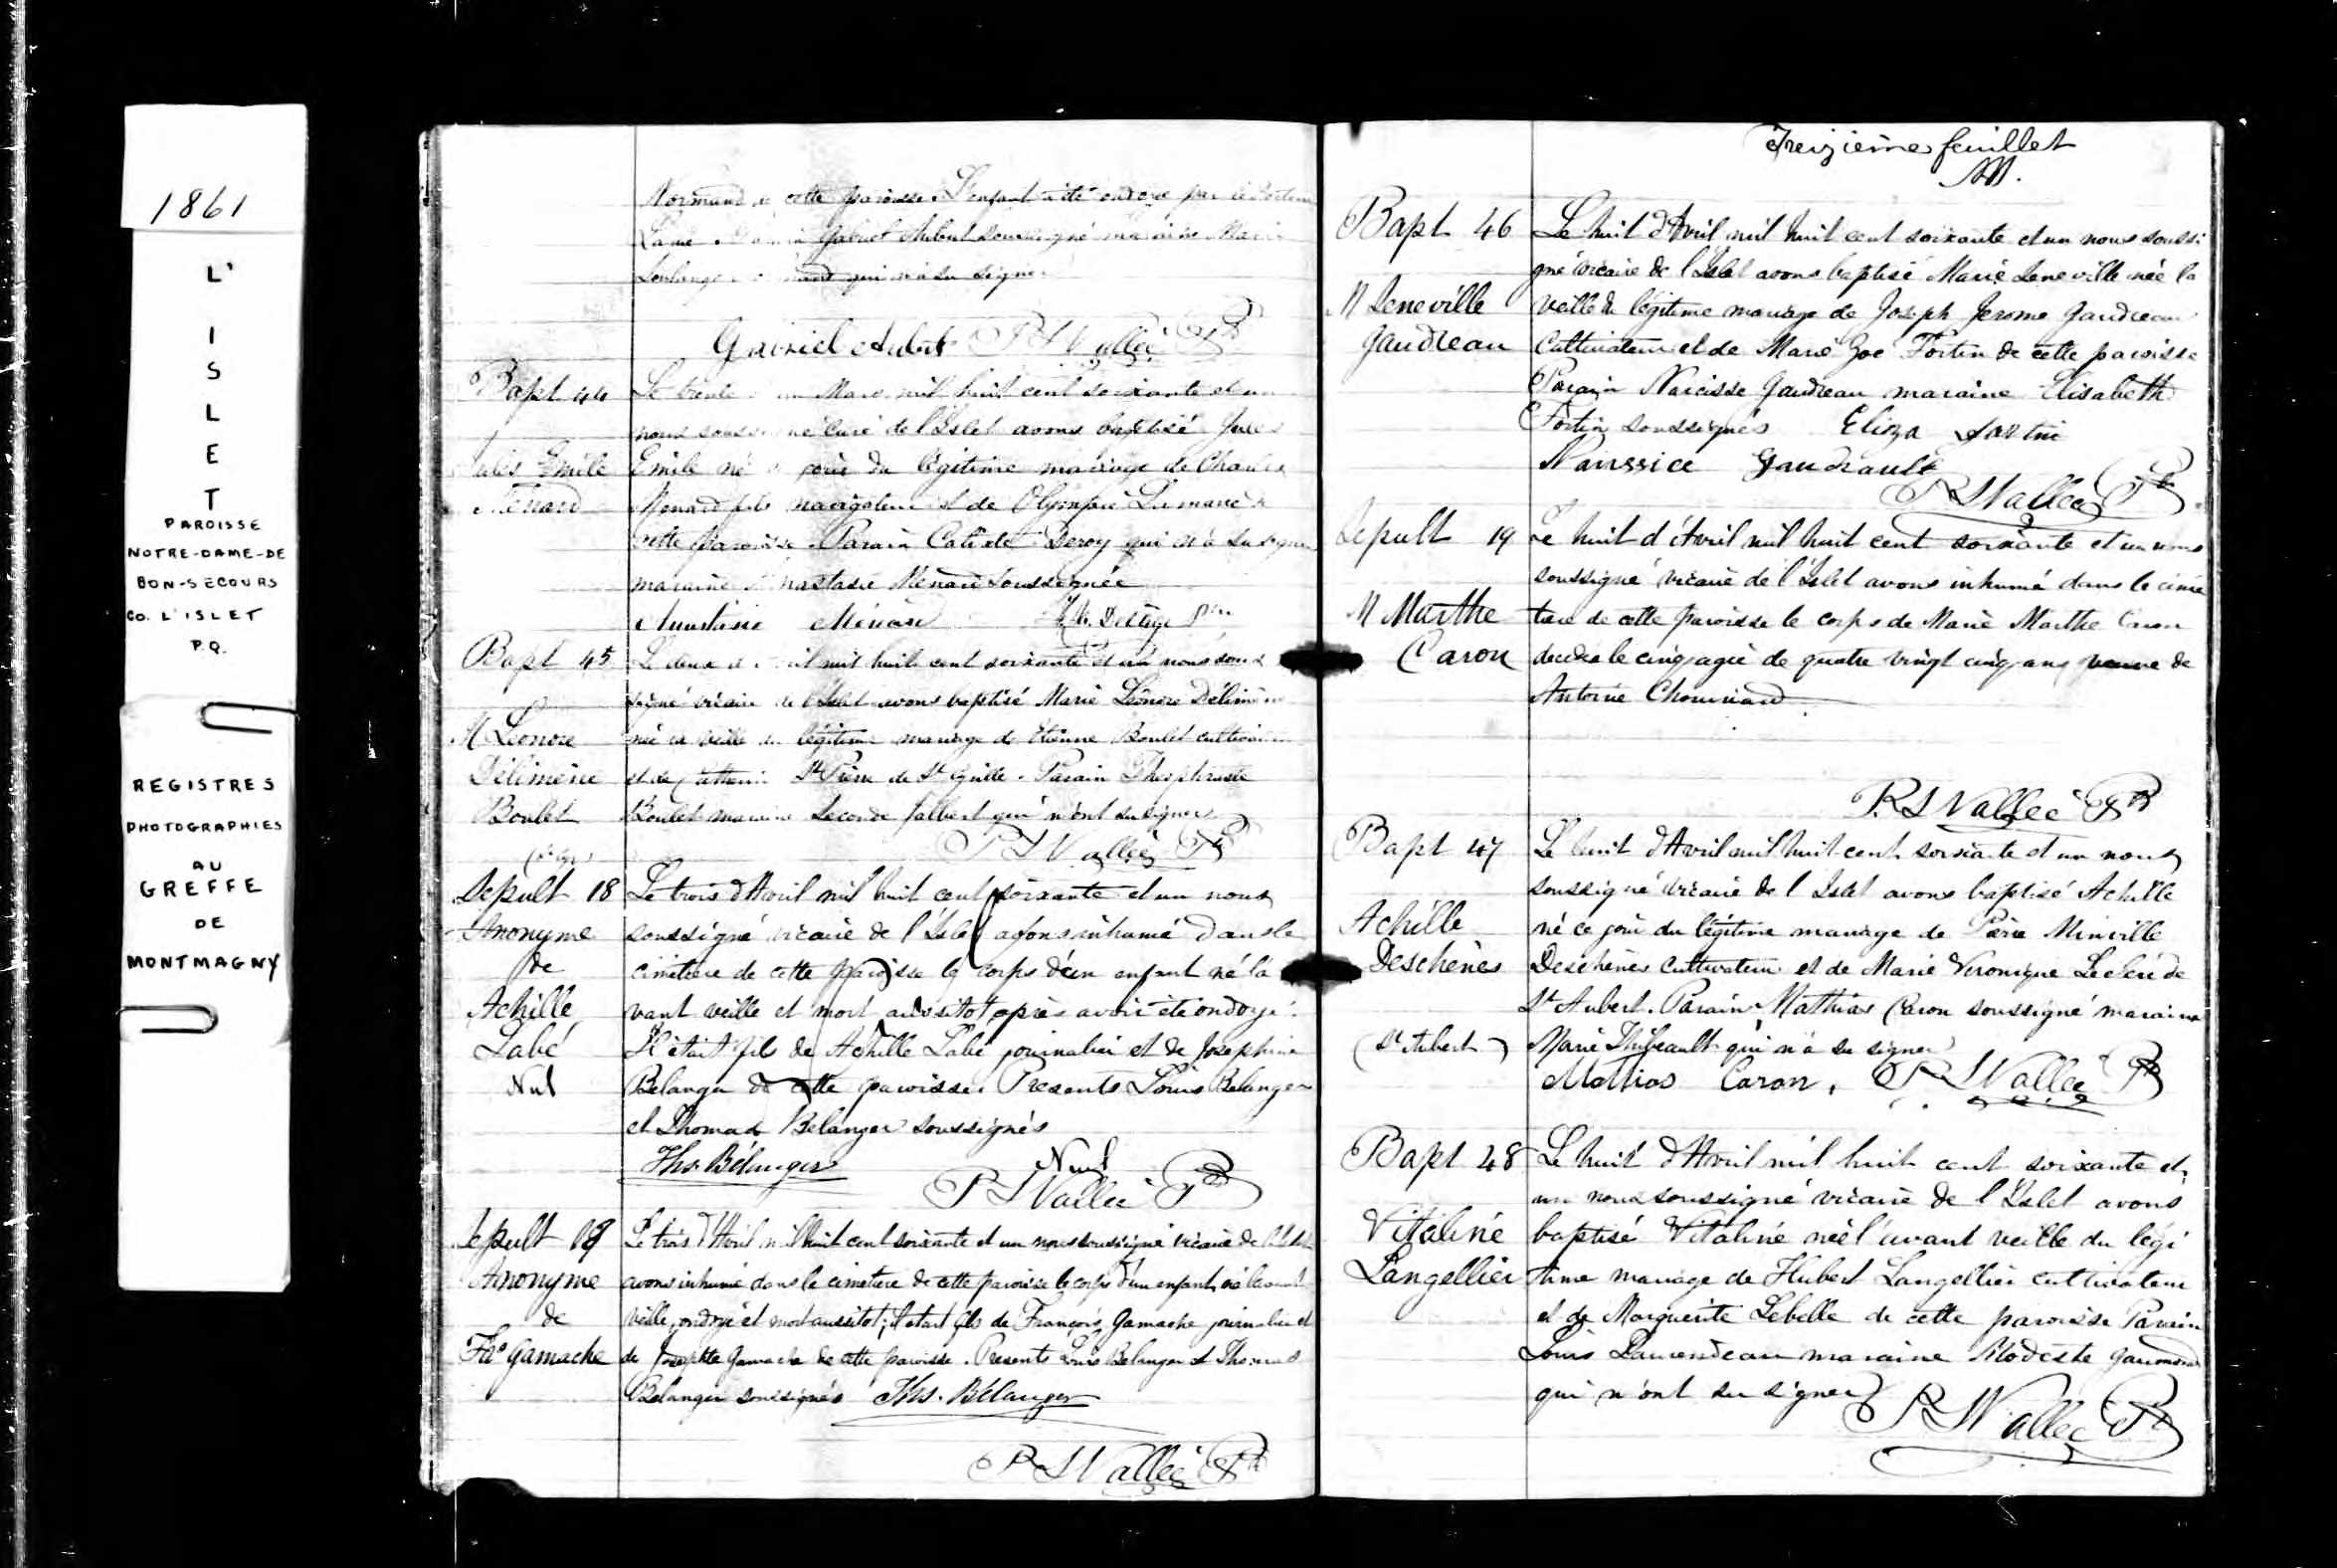 1861
L'
I
S
L
E
T
PAROISSE
NOTRE-DAME-DE
BON-SECOURS
CO. L'ISLET
P.Q.
REGISTRES
PHOTOGRAPHIES
AU
GREFFE
DE
MONTMAGNY
Normand de cette paroisse. L'enfant a été ondoyé par le Docteur
Gabriel Aubut soussigné maraine Marie
Solange qui n'a su signer
Gabriel Aubut P S Vallée Ptr
Bapt 44 Le trente un Mars mil huit cent soixante et un
nous soussigné Curé de l'Islet avons baptisé Jules
Jules Emile Emile né ce jour du légitime mariage de Charles
Ménard Menard fils navigateur et de Olympie Lamarre de
cette paroisse. Parain Calixte Deroy qui n'a su signer
maraine Anastasie Ménard soussignée
Anastasie Ménard Delâge Ptre
Bapt 45 Le deux d'Avril mil huit cent soixante et un nous sous
signé vicaire de l'Islet avons baptisé Marie Léonore Délimène
M Léonore née la veille du légitime mariage de Etienne Boulet cultivateur
Délimène et de Catherine St Pierre de St Cyrille. Parain Théophraste
Boulet Boulet maraine Seconde Jalbert qui n'ont su signer
(St Cyr) P S Vallée Ptr
Sepult 18 Le trois d'Avril mil huit cent soixante et un nous
Anonyme soussigné vicaire de l'Islet avons inhumé dans le
de cimetiere de cette paroisse le corps d'un enfant né la
Achille vant veille et mort aussitot après avoir été ondoyé.
Labé Il était fils de Achille Labé journalier et de Josephine
Nul Belanger de cette paroisse. Presents Louis Belanger
et Thomas Belanger soussignés
Ths. Bélanger Nul
P S Vallée Ptr
Sepult 18 Le trois d'Avril mil huit cent soixante et un nous soussigné vicaire de l'Islet
Anonyme avons inhumé dans le cimetiere de cette paroisse le corps d'un enfant né l'avant
de veille, ondoyé et mort aussitot; il etait fils de François Gamache journalier et
Frs Gamache de Josephte Gamache de cette paroisse. Presents Louis Belanger et Thomas
Belanger soussignés Ths. Bélanger
P S Vallée Ptr
Treizième feuillet
Bapt 46 Le huit d'Avril mil huit cent soixante et un nous soussi
gné vicaire de l'Islet avons baptisé Marie Leneville née la
M Leneville veille du légitime mariage de Joseph Jerome Gaudreau
Gaudreau Cultivateur et de Marie Zoé Fortin de cette paroisse
Parain Narcisse Gaudreau maraine Elisabeth
Fortin soussignés Eliza Fortin
Narssice Gaudrault
P S Vallée Ptr
Sepult 19 Le huit d'Avril mil huit cent soixante et un nous
soussigné vicaire de l'Islet avons inhumé dans le cime
M Marthe tiere de cette paroisse le corps de Marie Marthe Caron
Caron decedée le cinq, agée de quatre vingt cinq ans veuve de
Antoine Chouinard
P. S Vallée Ptr
Bapt 47 Le huit d'Avril mil huit cent soixante et un nous
soussigné vicaire de l'Islet avons baptisé Achille
Achille né ce jour du légitime mariage de Pierre Minville
Deschènes Deschènes cultivateur et de Marie Veronique Leclerc de
St Aubert. Parain Mathias Caron soussigné maraine
(St Aubert) Marie Thibeault qui n'a su signer
Mathias Caron, P S Vallée Ptr
Bapt 48 Le huit d'Avril mil huit cent soixante et
un nous soussigné vicaire de l'Islet avons
Vitaline baptisé Vitaline née l'avant veille du légi
Langellier time mariage de Hubert Langellier cultivateur
et de Marguerite Lebelle de cette paroisse Parain
Louis Laurendeau maraine Modeste
qui n'ont su signer P S Vallée Ptr